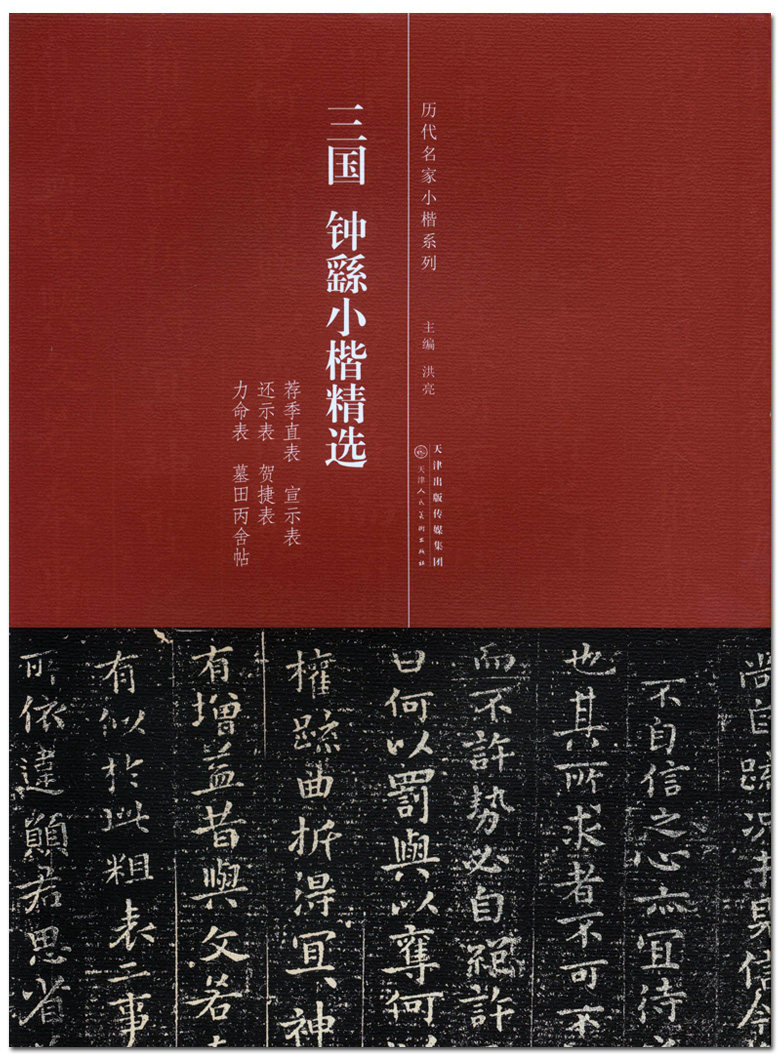 历代名家小楷系列
主编 洪亮
天津出版传媒集团
天津人民美術出版社
三国 钟繇小楷精选
荐季直表 宣示表
还示表 贺捷表
力命表 墓田丙舍帖
尚自疏況未見信今
不自信之心亦宜待
也其所求者不可不
而不許勢必自絕許
曰何以罰與以奪何
權疏曲折得宜神
有增益昔與文若
有似於此粗表二事
所依違願君思省